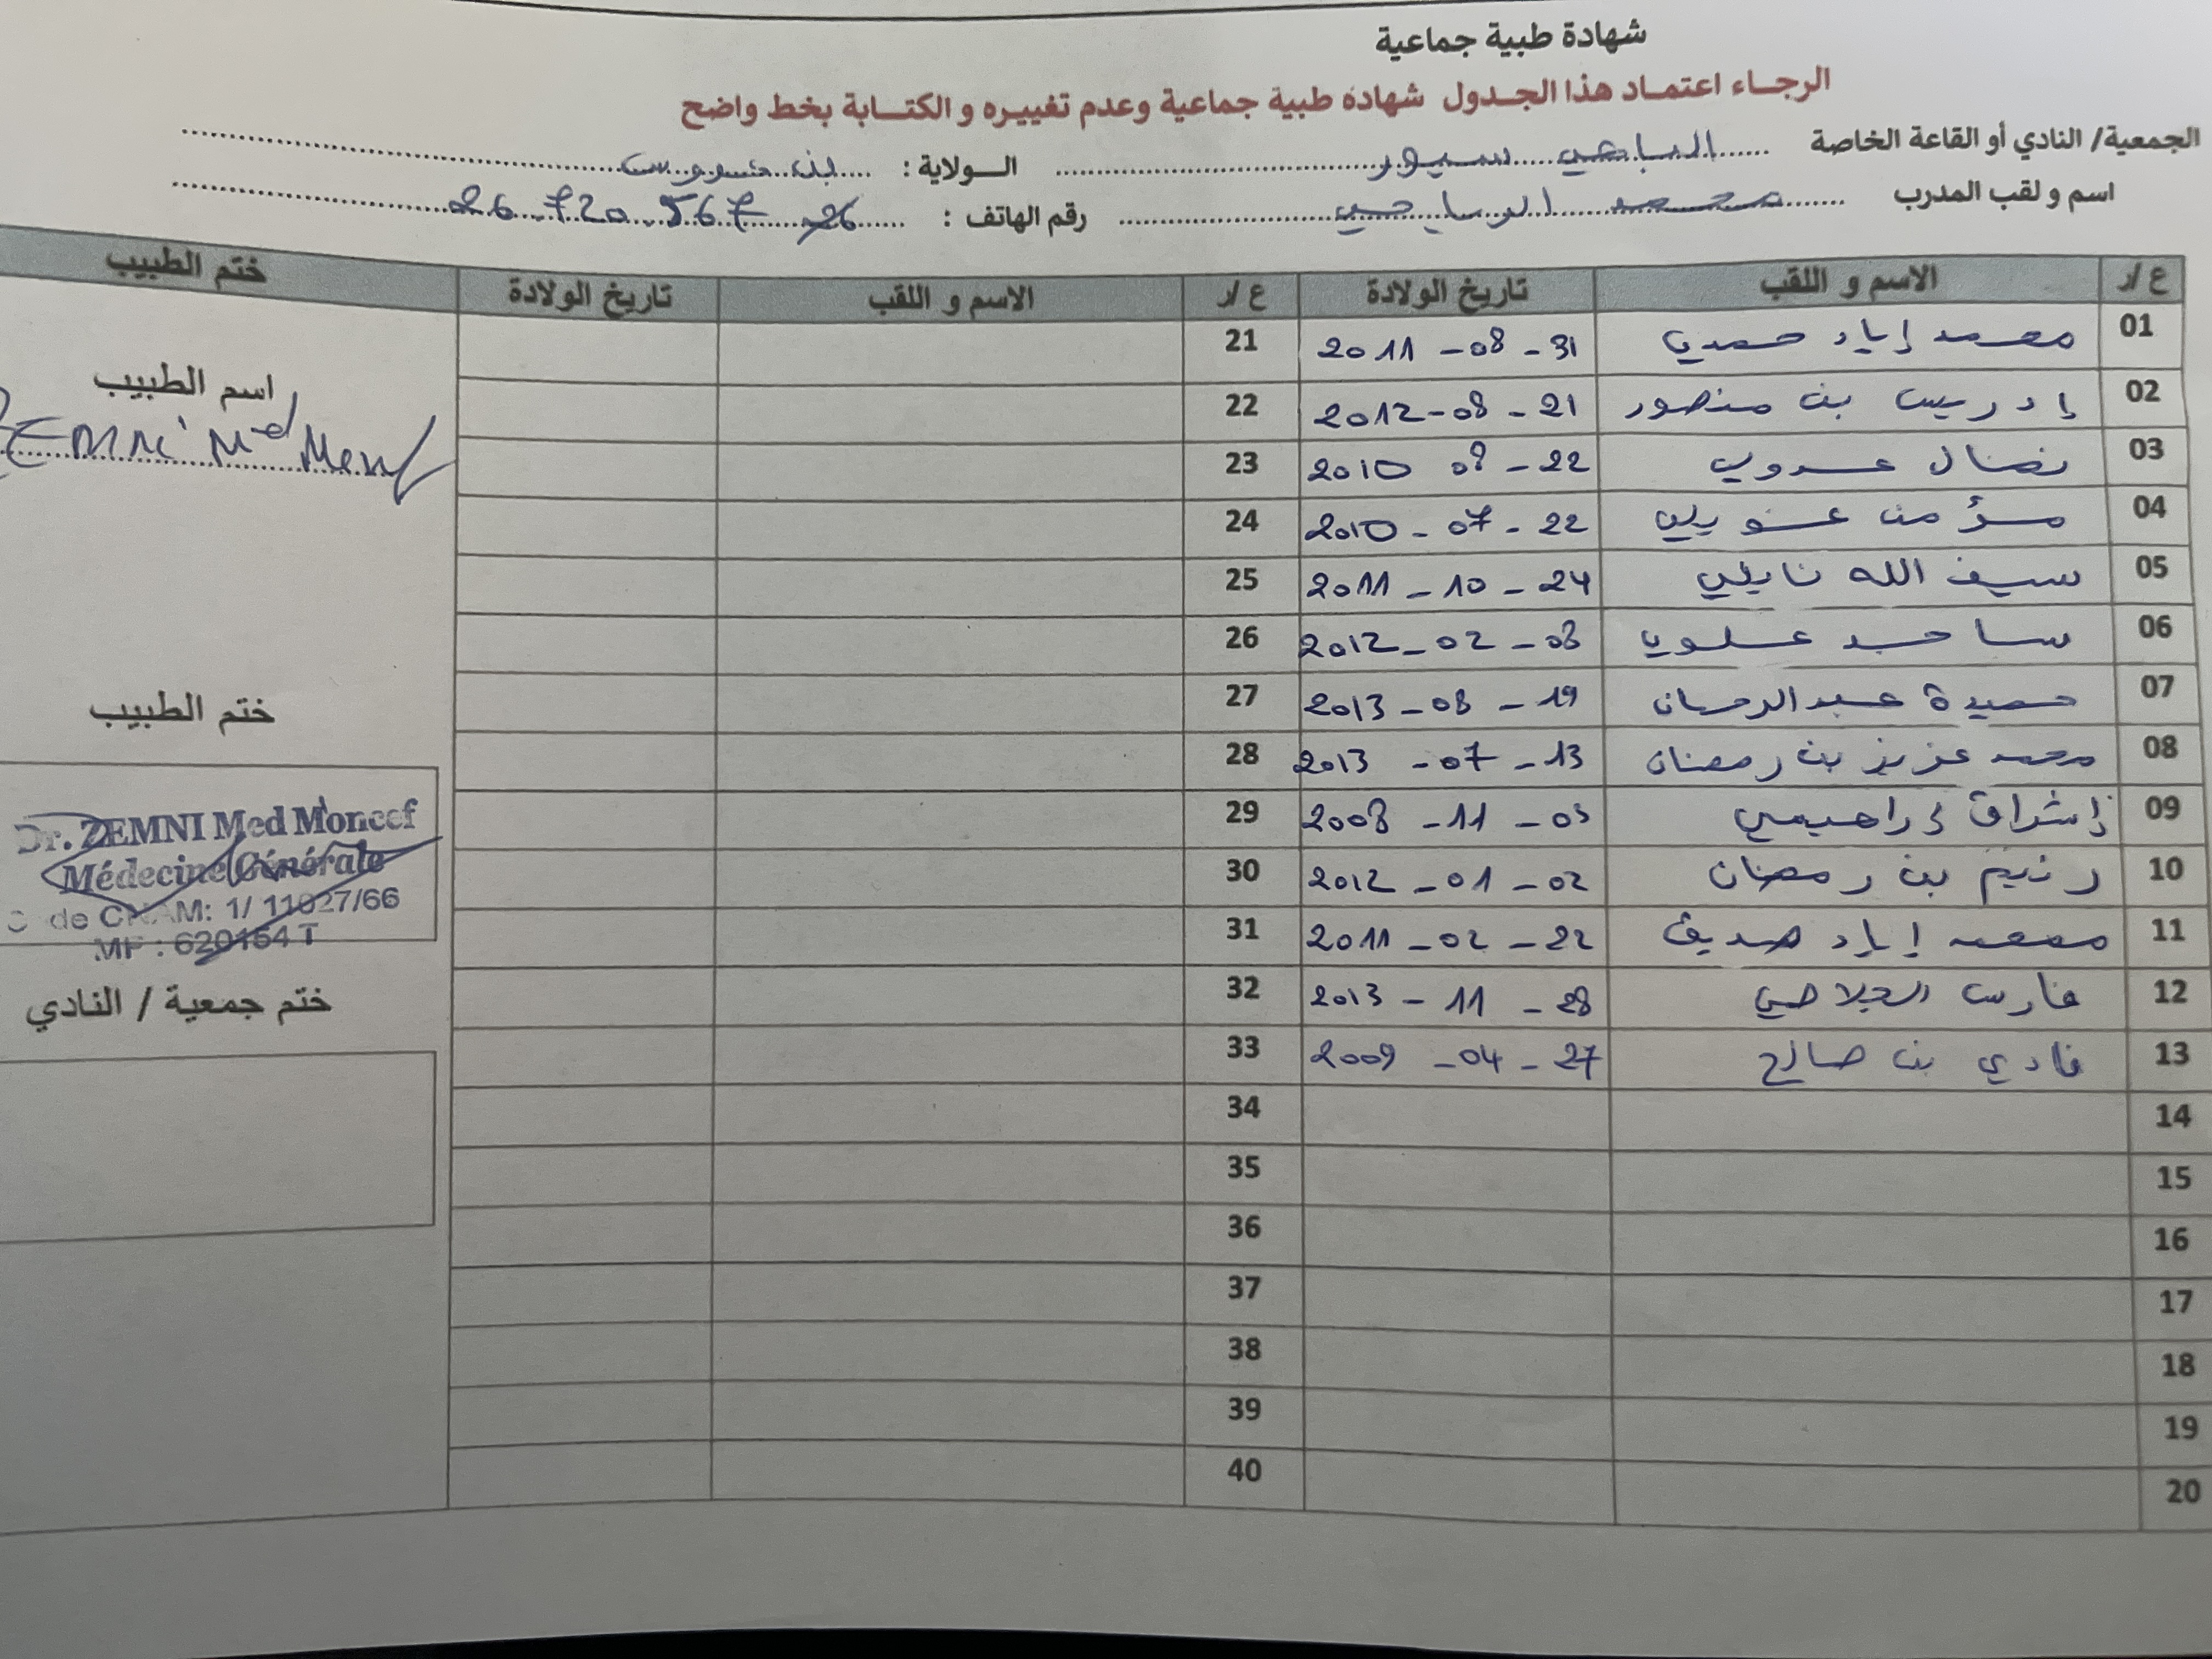 شهادة طبية جماعية
الرجاء اعتماد هذا الجدول شهادة طبية جماعية وعدم تغييره و الكتابة بخط واضح
الجمعية/ النادي أو القاعة الخاصة الباجي سبور الولاية : بن عروس
اسم و لقب المدرب محمد الرياحي رقم الهاتف : 26 720 567
ع/ر الاسم و اللقب تاريخ الولادة ع/ر الاسم و اللقب تاريخ الولادة ختم الطبيب
01 محمد إياد حمدي 31 - 08 - 2011 21
02 إدريس بن منصور 21 - 08 - 2012 22
03 نضال عدوي 22 - 08 2010 23
04 مؤمن 22 - 07 - 2010 24
05 سيف الله نايلي 24 - 10 - 2011 25
06 ساجد علوي 08 - 02 - 2012 26
07 حميدة عبد الرحمان 19 - 08 - 2013 27
08 محمد عزيز بن رمضان 13 - 07 - 2013 28
09 إشراق براهيمي 05 - 11 - 2008 29
10 رنيم بن رمضان 02 - 01 - 2012 30
11 محمد إياد صديق 22 - 02 - 2011 31
12 فارس الجلاصي 28 - 11 - 2013 32
13 فادي بن صالح 27 - 04 - 2009 33
14 34
15 35
16 36
17 37
18 38
19 39
20 40
اسم الطبيب
ZEMNI Md Moncef
ختم الطبيب
Dr. ZEMNI Med Moncef
Médecine Générale
Code CNAM: 1/ 11027/66
MF : 620154 T
ختم جمعية / النادي